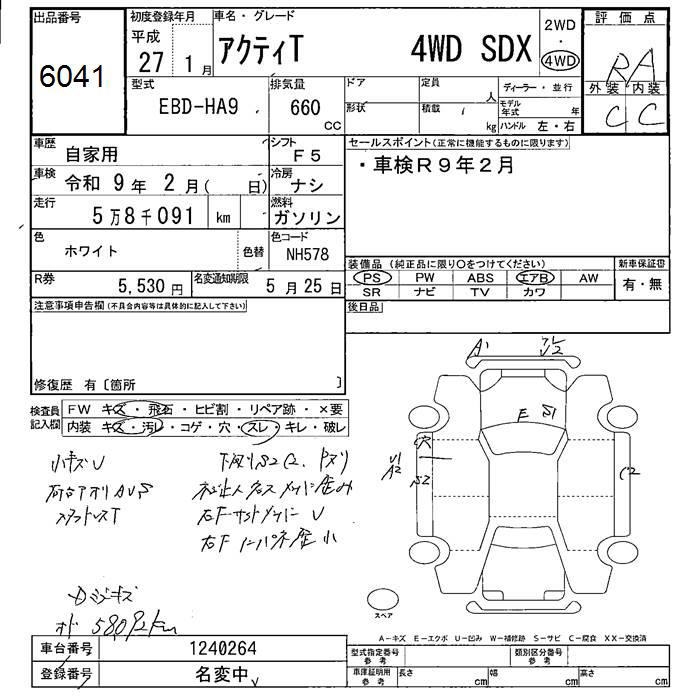 出品番号 初度登録年月 車名・グレード
6041
平成 27 1月
アクティT 4WD SDX
2WD ・ 4WD
評価点
RA
外装 内装
C C
型式 EBD-HA9
排気量 660 CC
ドア 定員 人
形状 積載 kg
ディーラー・並行
モデル年式 年
ハンドル 左・右
車歴 自家用
シフト F5
車検 令和 9年 2月( 日)
冷房 ナシ
走行 5万8千091 km
燃料 ガソリン
色 ホワイト 色替
色コード NH578
R券 5,530円
名変通知期限 5月25日
セールスポイント(正常に機能するものに限ります)
・車検R9年2月
装備品(純正品に限り○をつけてください) 新車保証書
PS PW ABS エアB AW
SR ナビ TV カワ
有・無
後日品
注意事項申告欄(不具合内容等は具体的に記入して下さい)
修復歴 有〔箇所 〕
検査員記入欄
FW キズ・飛石・ヒビ割・リペア跡・×要
内装 キズ・汚レ・コゲ・穴・スレ・キレ・破レ
小キズU
下回りS2C2
右F
A1
E S1
穴
U1
A2
S2
C2
スペア
A-キズ E-エクボ U-凹み W-補修跡 S-サビ C-腐食 XX-交換済
車台番号 1240264
登録番号 名変中
型式指定番号 参考
類別区分番号 参考
車庫証明用 参考
長さ cm 幅 cm 高さ cm